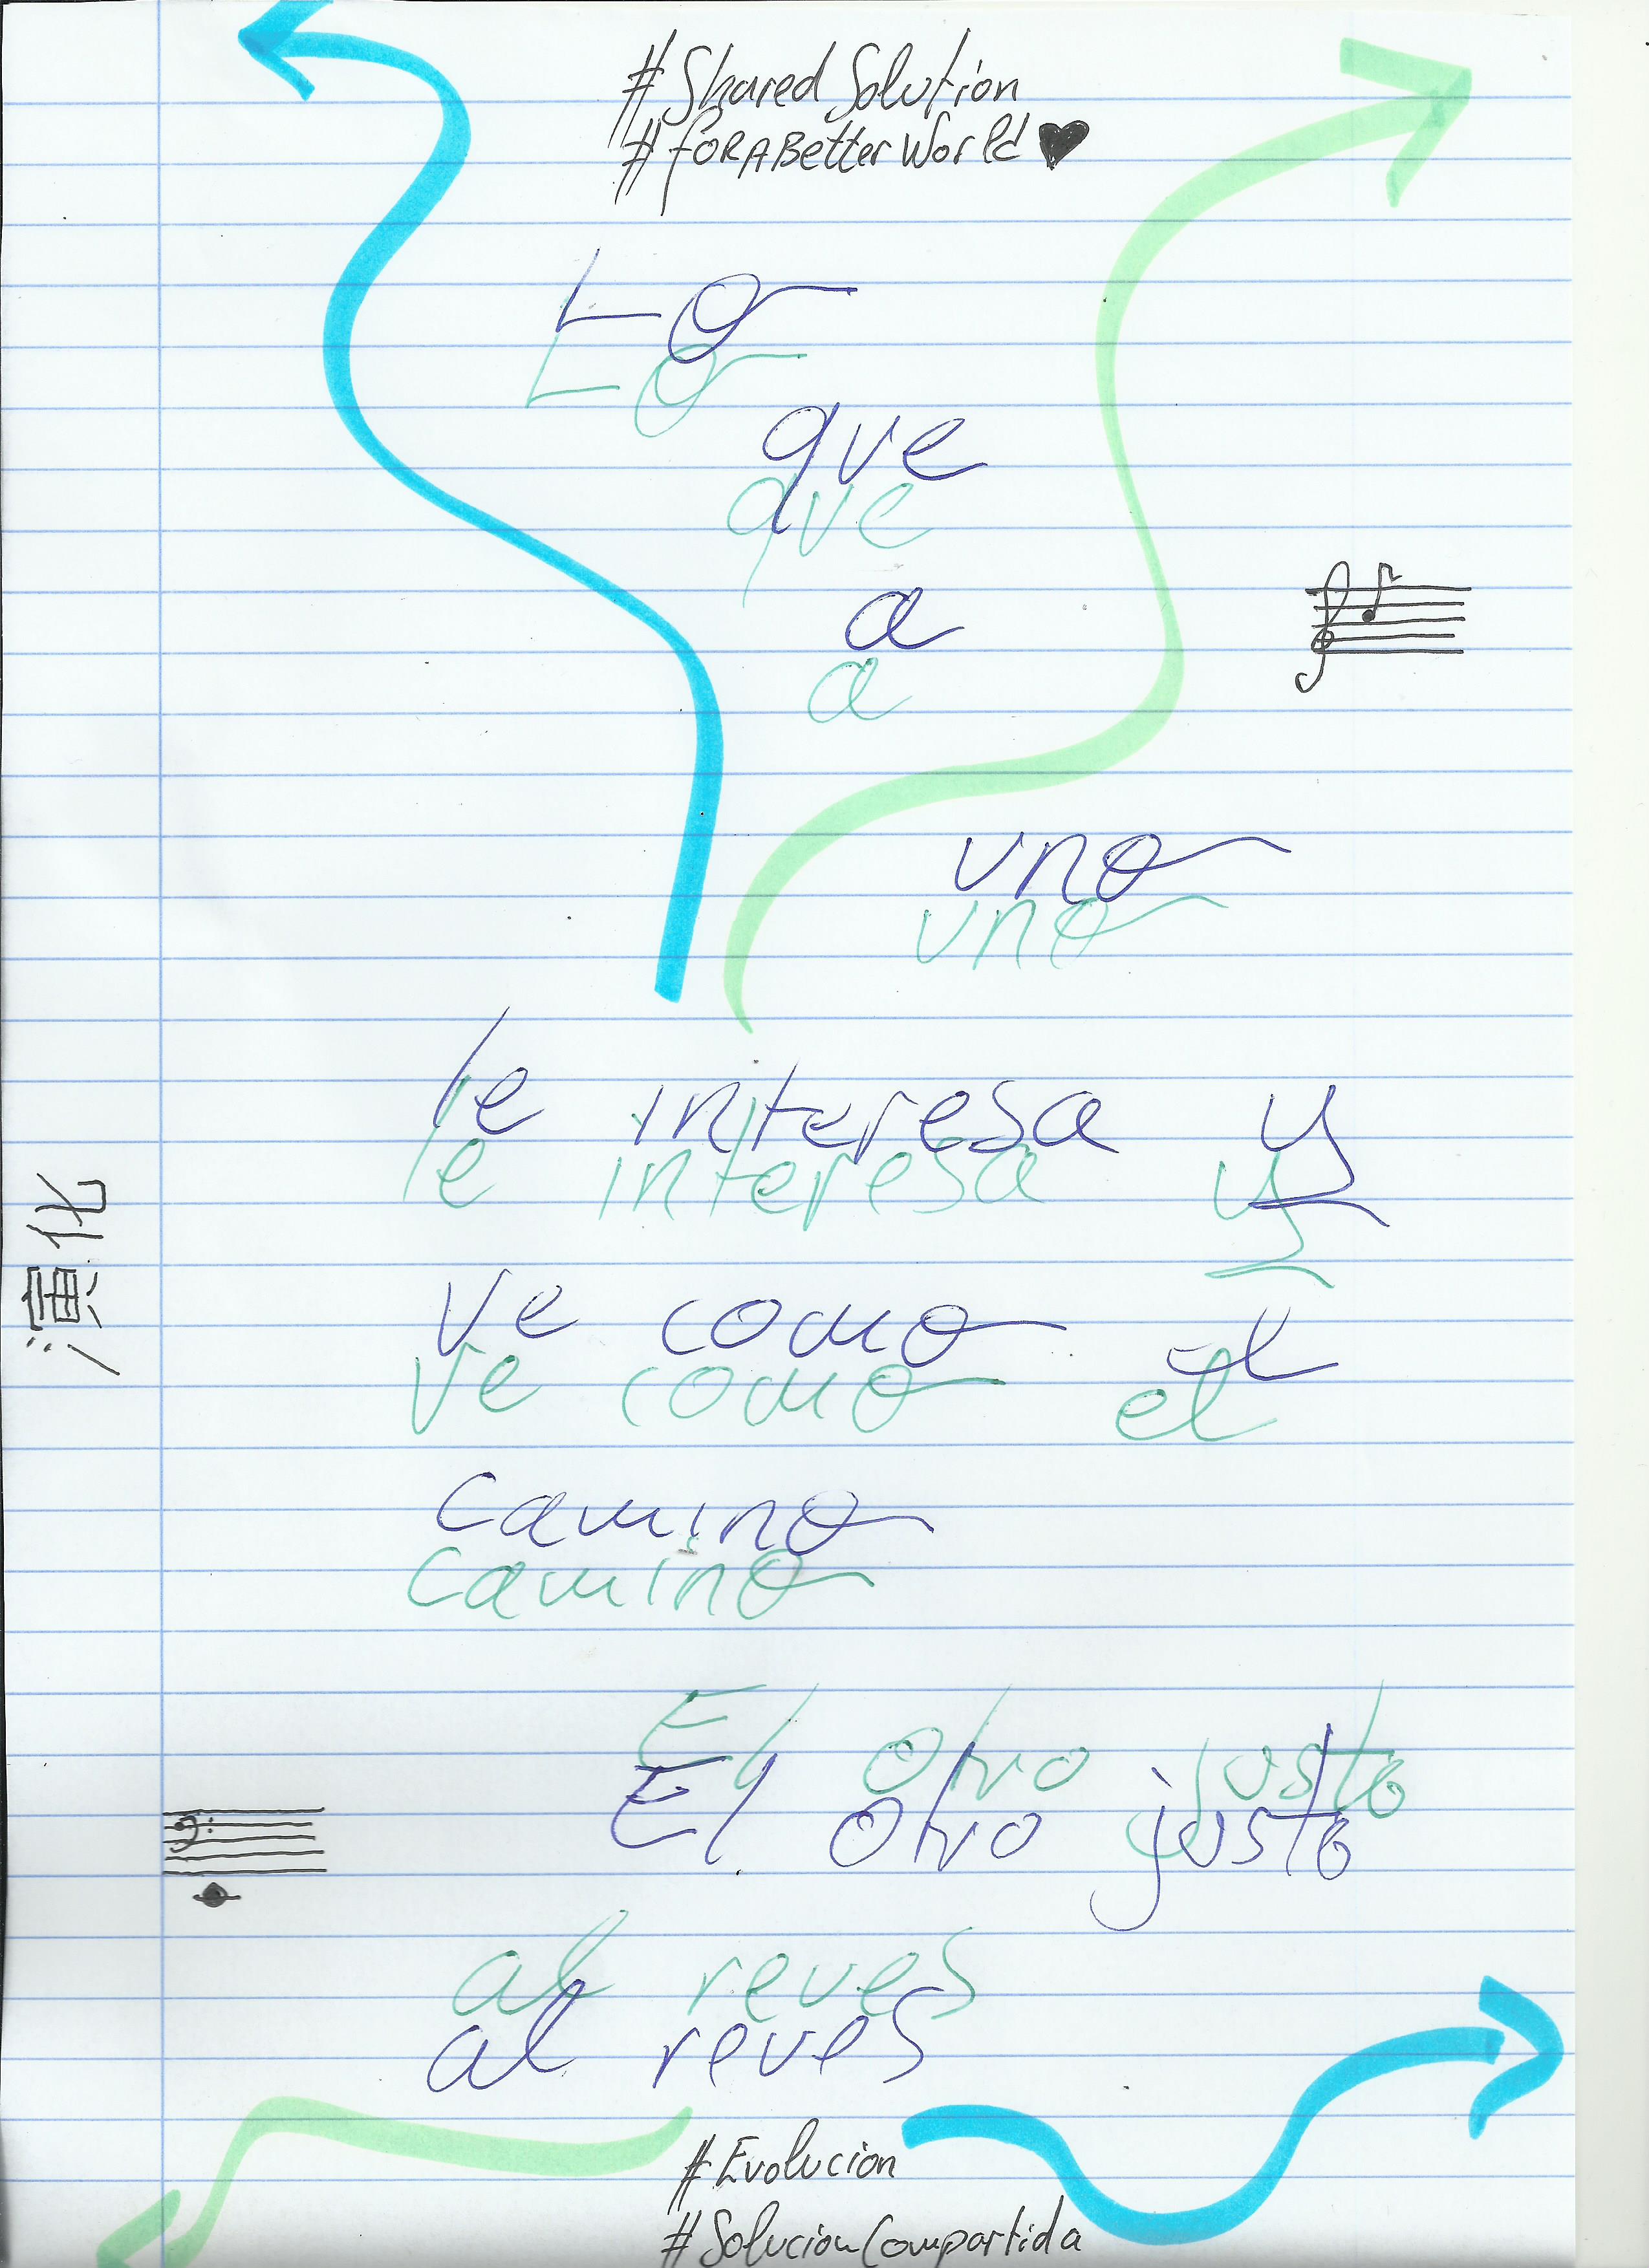 #SharedSolution
#forABetterWorld
Lo
Lo
que
que
a
a
uno
uno
le interesa y
le interesa y
演化
ve como el
ve como el
camino
camino
El otro justo
El otro justo
al reves
al reves
#Evolucion
#SolucionCompartida